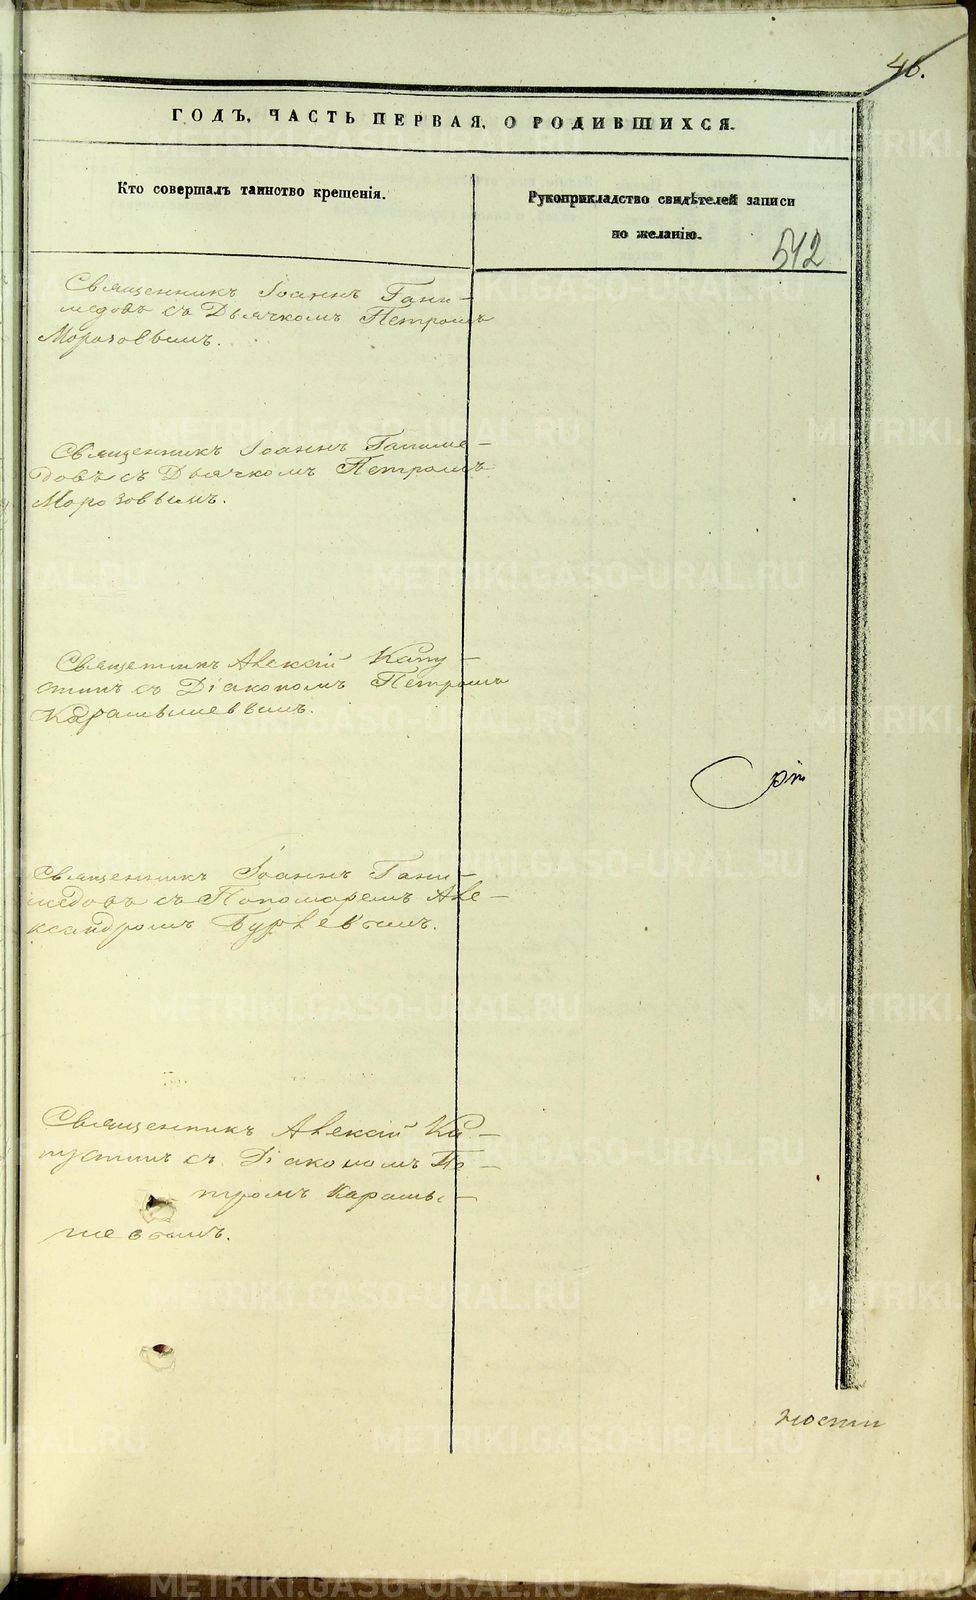 46.
ГОДЪ, ЧАСТЬ ПЕРВАЯ, О РОДИВШИХСЯ.
Кто совершалъ таинство крещенія.
Рукоприкладство свидѣтелей записи
по желанію.
512
Священникъ Іоаннъ Гани-
медовъ съ Дьячкомъ Петромъ
Морозовымъ.
Священникъ Іоаннъ Ганиме-
довъ съ Дьячкомъ Петромъ
Морозовымъ.
Священникъ Алексій Капу-
стинъ съ Діакономъ Петромъ
Карамышевымъ.
Священникъ Іоаннъ Гани-
медовъ съ Пономаремъ Але-
ксандромъ
Священникъ Алексій Ка-
пустинъ съ Діакономъ Пе-
тромъ Карамы-
шевымъ.
ности
METRIKI.GASO-URAL.RU